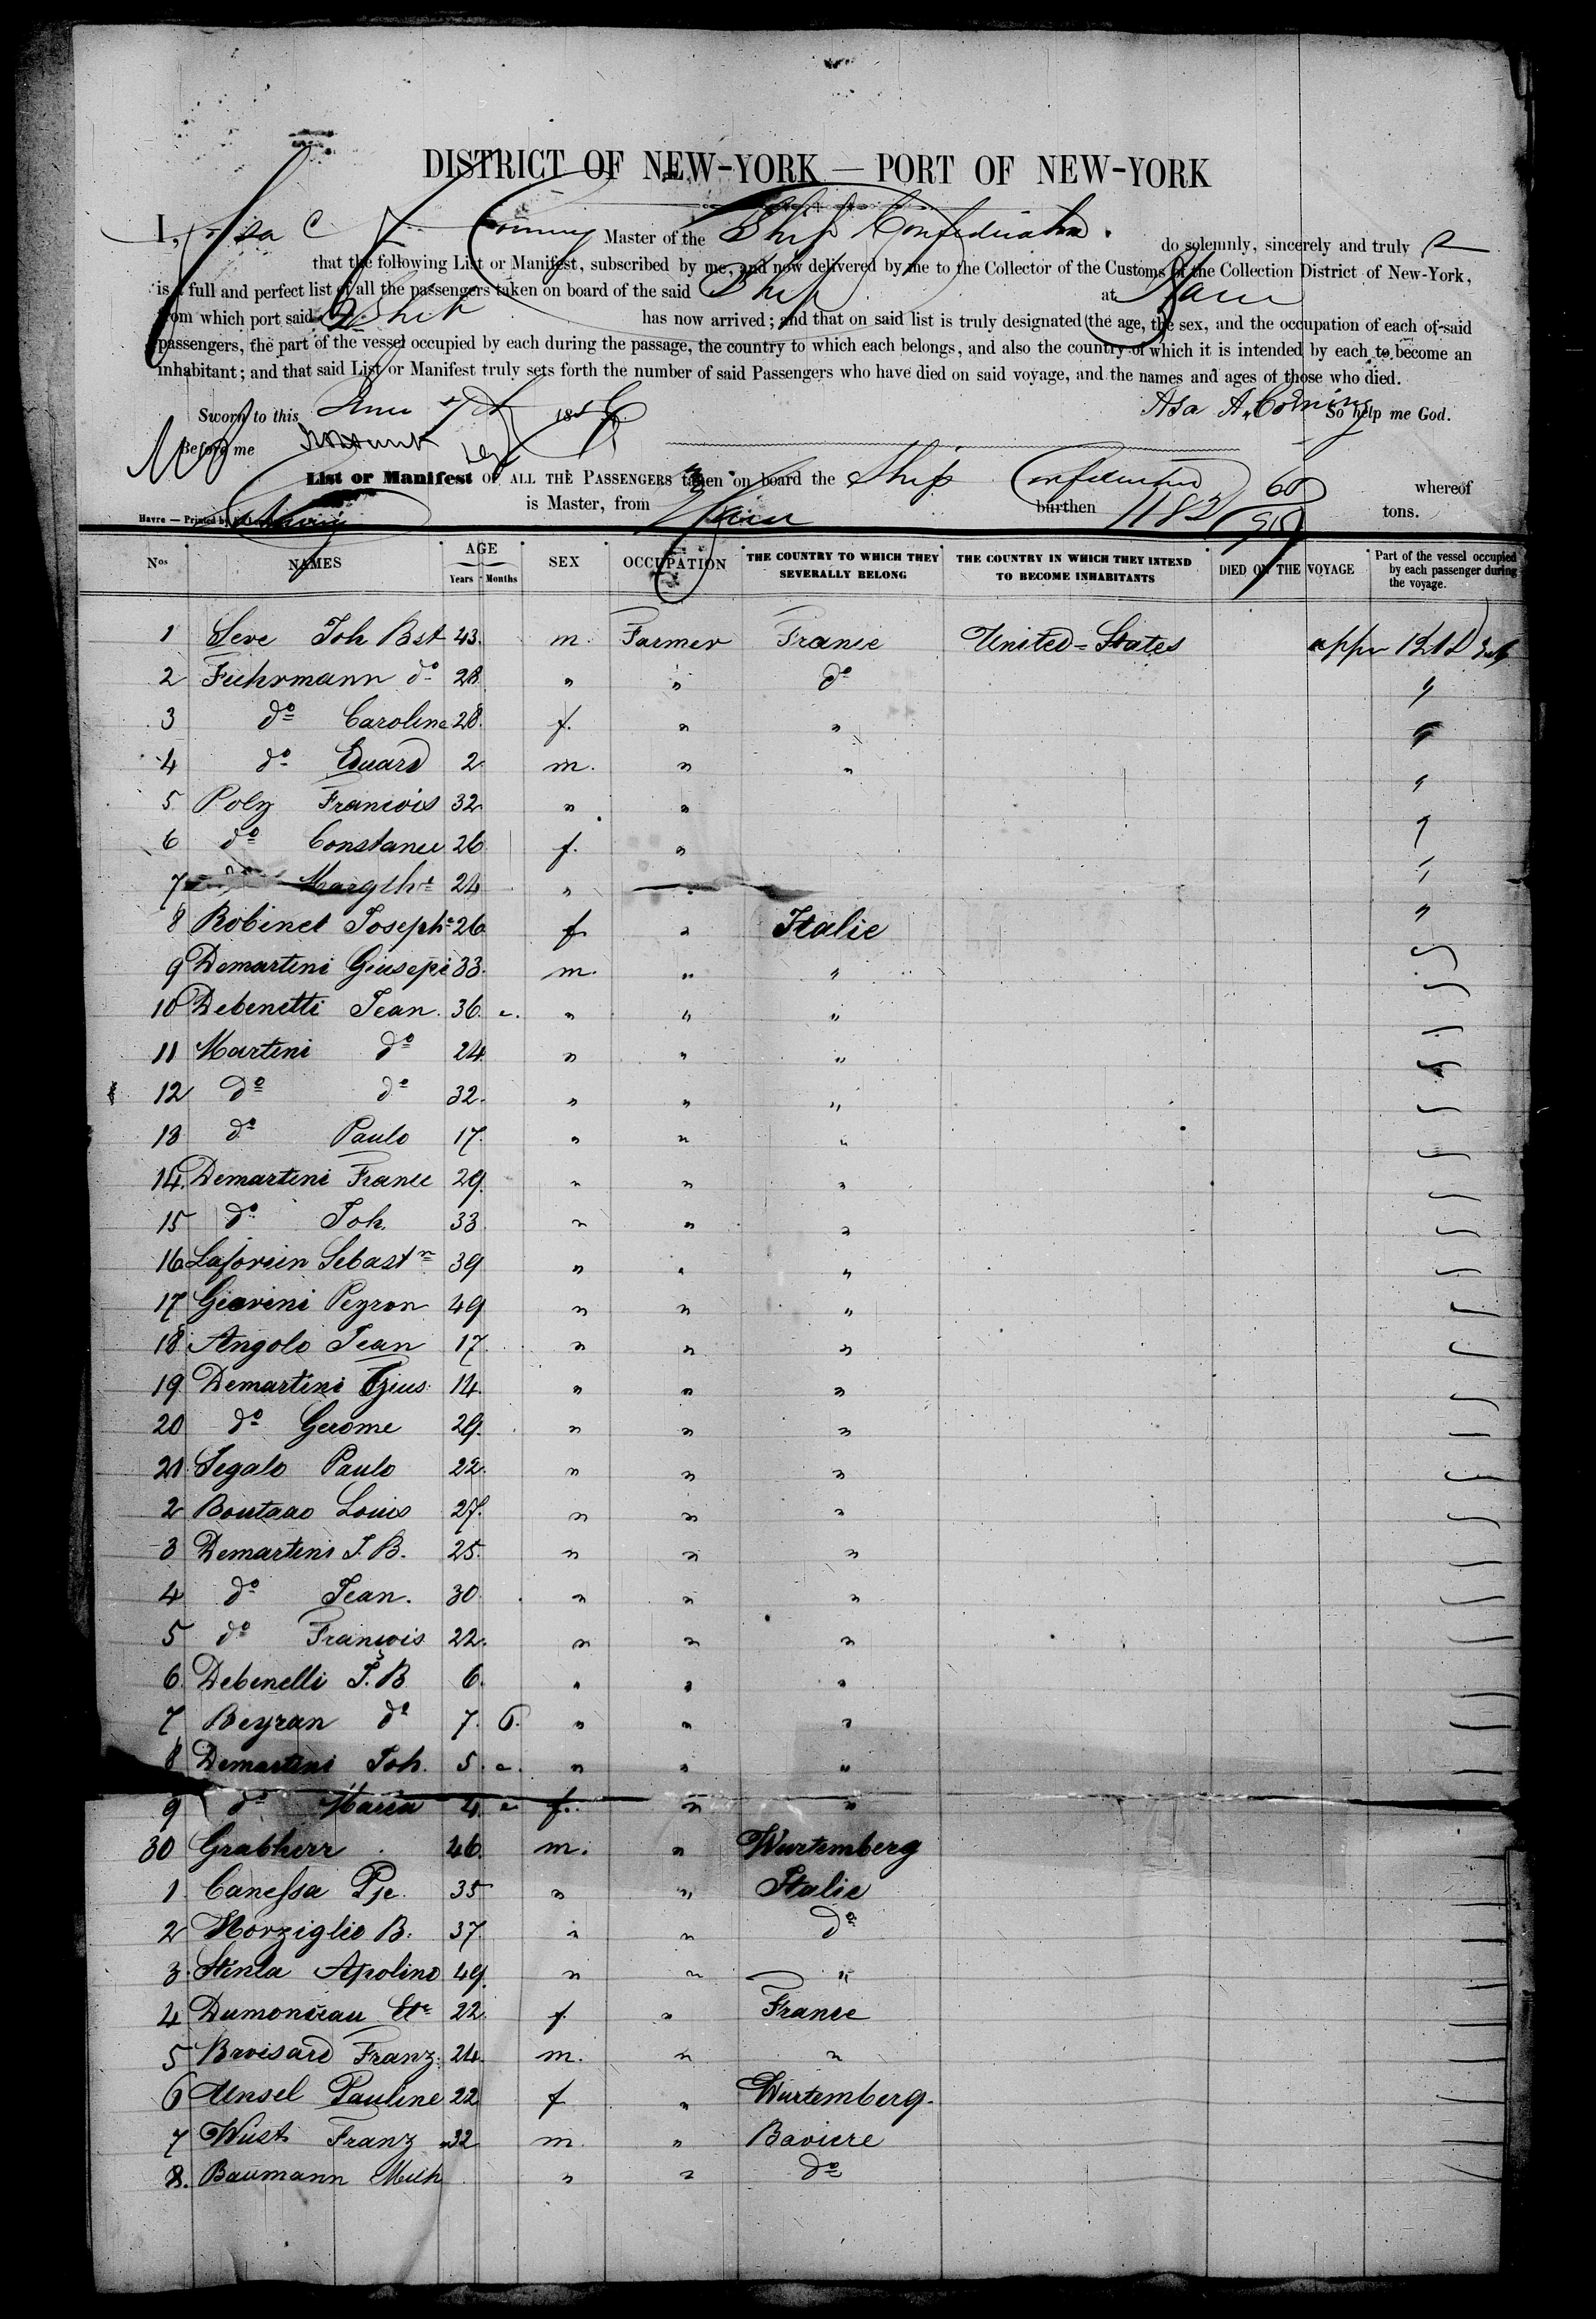 DISTRICT OF NEW-YORK — PORT OF NEW-YORK
I, Asa Corning Master of the Ship Confederation. do solemnly, sincerely and truly
that the following List or Manifest, subscribed by me, and now delivered by me to the Collector of the Customs of the Collection District of New-York,
is a full and perfect list of all the passengers taken on board of the said Ship at Havre
from which port said Ship has now arrived; and that on said list is truly designated the age, the sex, and the occupation of each of said
passengers, the part of the vessel occupied by each during the passage, the country to which each belongs, and also the country of which it is intended by each to become an
inhabitant; and that said List or Manifest truly sets forth the number of said Passengers who have died on said voyage, and the names and ages of those who died.
Sworn to this June 185 Asa A. Corning So help me God.
Before me
List or Manifest OF ALL THE PASSENGERS taken on board the Ship Confederation whereof
is Master, from Havre burthen 1182 60/95 tons.
Havre — Printed by
Nos NAMES AGE Years Months SEX OCCUPATION THE COUNTRY TO WHICH THEY SEVERALLY BELONG THE COUNTRY IN WHICH THEY INTEND TO BECOME INHABITANTS DIED ON THE VOYAGE Part of the vessel occupied by each passenger during the voyage.
1 Seve Joh Bst 43. m. Farmer France United-States upper
2 Fuhrmann do 28 " " do "
3 do Caroline 28. f. " " "
4 do Eduard 2 m. " " "
5 Poly Francois 32 " " "
6 do Constance 26 f. " "
7 do Margthe 24 " "
8 Robinet Josephe 26 f. " Italie "
9 Demartini Giusepi 33. m. " "
10 Debenetti Jean. 36. " " " "
11 Martini do 24 " " "
12 do do 32. " " "
13 do Paulo 17. " " "
14. Demartini France 29. " " "
15 do Joh. 33 " " "
16 Laforein Sebastn 39 " " "
17 Giovini Peyron 49 " " "
18 Angolo Jean 17. " " "
19 Demartini Gius. 14. " " "
20 do Gerome 29. " " "
21. Segalo Paulo 22. " " "
2 Boutaao Louis 27. " " "
3 Demartini J. B. 25. " " "
4 do Jean. 30. " " "
5 do Francois 22. " " "
6. Debenelli J. B 6. " " "
7 Beyran do 7. 6. " " "
8 Demartini Joh. 5. " " " "
9 do Maria 4 " f. " "
30 Grabherr 46. m. " Wurtemberg
1. Canessa Pje. 35 " " Italie
2 Morziglio B. 37. " " do
3. Stinla Apolino 49. " " "
4 Dumonceau Ete 22. f. " France
5 Broisard Franz. 24. m. " "
6 Unsel Pauline 22 f " Wurtemberg.
7 Wüst Franz 32 m. " Baviere
8. Baumann Mich " " do